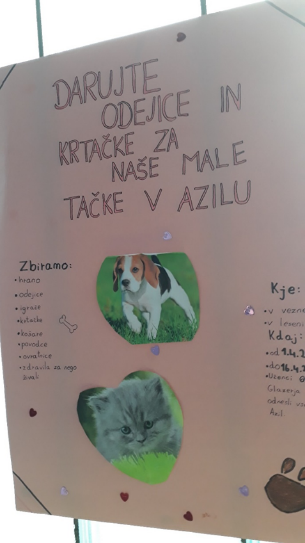 DARUJTE
ODEJICE IN
KRTAČKE ZA
NAŠE MALE
TAČKE V AZILU
Zbiramo:
• hrano
• odejice
• igrače
• krtačke
• košare
• povodce
• ovratnice
• zdravila za nego
živali
Kje:
• v
• v
Kdaj:
• od 1.4.2
• do 16.4.2
• Učenci
odnesli
Azil.